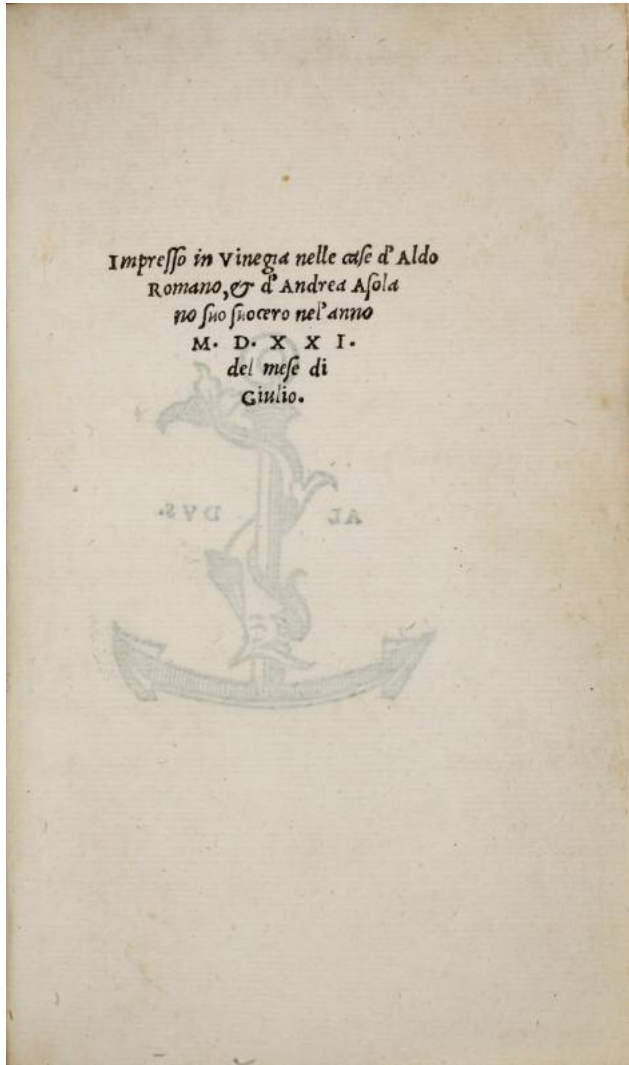 Impreſſo in Vinegia nelle caſe d'Aldo
Romano, & d'Andrea Aſola
no ſuo ſuocero nel'anno
M. D. X X I.
del meſe di
Giulio.
AL DVS.